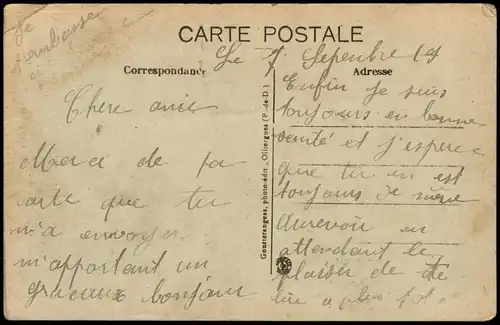 Je
t'embrasse
CARTE POSTALE
Correspondance
Adresse
Le 7 Sepenbre 19
Chere amie
Merci de ta
carte que tu
m'a envoyer
m'apportant un
gracieux bonjour
Gouttefangeas, photo-édit., Olliergues (P.-de-D.)
Enfin Je suis
toujours en bonne
santé et j'espere
que tu en est
toujours de même
Aurevoir en
attendant le
plaisir de te
lire a plus tot